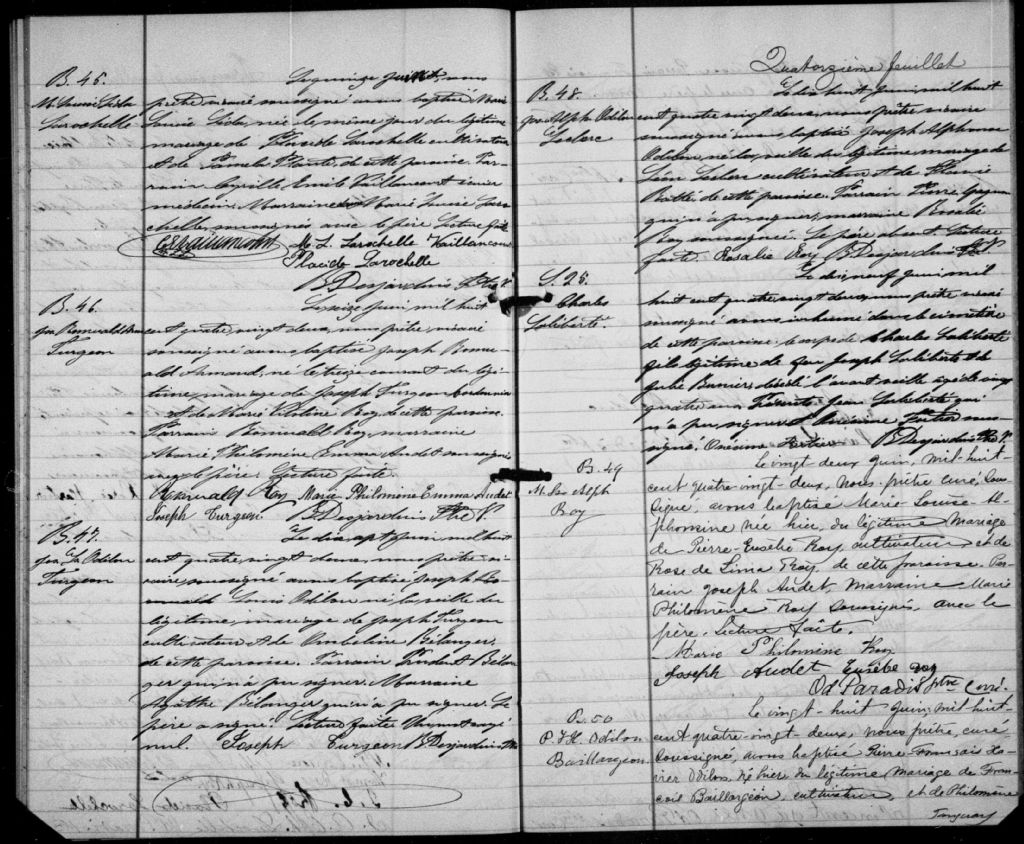 B. 45.
M. Louise Lida
Larochelle
Le quinze juin, nous
prêtre vicaire soussigné avons baptisé Marie
Louise Lida, née le même jour du légitime
mariage de Placide Larochelle cultivateur
et de Pamela Plante, de cette paroisse. Par-
rain Cyrille Emile Vaillancourt écuier
médecin. Marraine Marie Louise Laro-
chelle, soussignés avec le père. Lecture faite
M. L. Larochelle Vaillancour
Placide Larochelle
B Desjardins Ptre V.
B. 46.
Jos Romuald Arm
Turgeon
Le seize juin, mil huit
cent quatre vingt deux, nous prêtre, vicaire
soussigné avons baptisé Joseph Romu-
ald Armand, né le treize courant du légi-
time mariage de Joseph Turgeon cordonnier
et de Marie Roy, de cette paroisse.
Parrain Romuald Roy, marraine
Marie Philomène Emma Audet soussignés
avec le père. Lecture faite
Romuald Roy Marie Philomène Emma Audet
Joseph Turgeon B Desjardins Ptre V.
B. 47.
Jos Ls Odilon
Turgeon
Le dix sept juin mil huit
cent quatre vingt deux, nous prêtre vi-
caire, soussigné avons baptisé Joseph
Louis Odilon né la veille du
légitime mariage de Joseph Turgeon
cultivateur et de Ombeline Bélanger
de cette paroisse. Parrain Prudent Bélan-
ger qui n'a pu signer. Marraine
Agathe Bélanger qui n'a pu signer. Le
père a signé. Lecture faite Un mot rayé
nul. Joseph Turgeon B Desjardins Ptre
Quatorzième feuillet
B. 48.
Jos Alph Odilon
Leclerc
Le dix huit juin, mil huit
cent quatre vingt deux, nous prêtre vicaire
soussigné avons baptisé Joseph Alphonse
Odilon, né la veille du légitime mariage de
Léon Leclerc cultivateur et de
de cette paroisse. Parrain Pierre Gagnon
qui n'a pu signer, marraine Rosalie
Roy soussignée. Le père absent. Lecture
faite. Rosalie Roy B Desjardins Ptre V.
S. 25.
Charles
Laliberté.
Le dix neuf juin mil
huit cent quatre vingt deux, nous prêtre vicaire
soussigné avons inhumé dans le cimetière
de cette paroisse, le corps de Charles Laliberté
fils légitime de feu Joseph Laliberté et de
Julie décédé l'avant veille âgé de vingt
quatre ans Présents: Jean Laliberté qui
n'a pu signer Onésime Fortier sous-
signé. Onésime Fortier B Desjardins Ptre V.
B. 49
M. Lse Alph
Roy
Le vingt deux Juin, mil-huit-
cent quatre-vingt-deux, Nous prêtre curé, Sous-
signé, avons baptisé Marie Louise Al-
phonsine née hier, du légitime Mariage
de Pierre-Eusèbe Roy cultivateur et de
Rose de Lima Roy, de cette paroisse. Par-
rain Joseph Audet, Marraine Marie
Philomène Roy Soussignés, avec le
père. Lecture faite.
Marie Philomène Roy
Joseph Audet Eusèbe Roy
Od. Paradis ptre Curé.
B. 50
P. F. X. Odilon
Baillargeon
Le vingt-huit Juin, mil huit-
cent quatre-vingt-deux, nous prêtre, curé
Soussigné, avons baptisé Pierre François Xa-
vier Odilon, né hier du légitime Mariage de Fran-
çois Baillargeon, cultivateur, et de Philomène
Tanguay